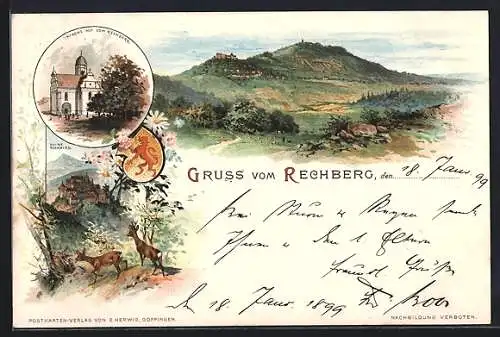 KIRCHE AUF DEM RECHBERG.
RUINE RECHBERG.
GRUSS VOM RECHBERG, den 18. Janr. 99
bei Sturm u Regen sendet
Ihnen u den l Eltern
freundl Grüße
Den 18. Janr 1899
POSTKARTEN-VERLAG VON E. HERWIG, GÖPPINGEN.
NACHBILDUNG VERBOTEN.